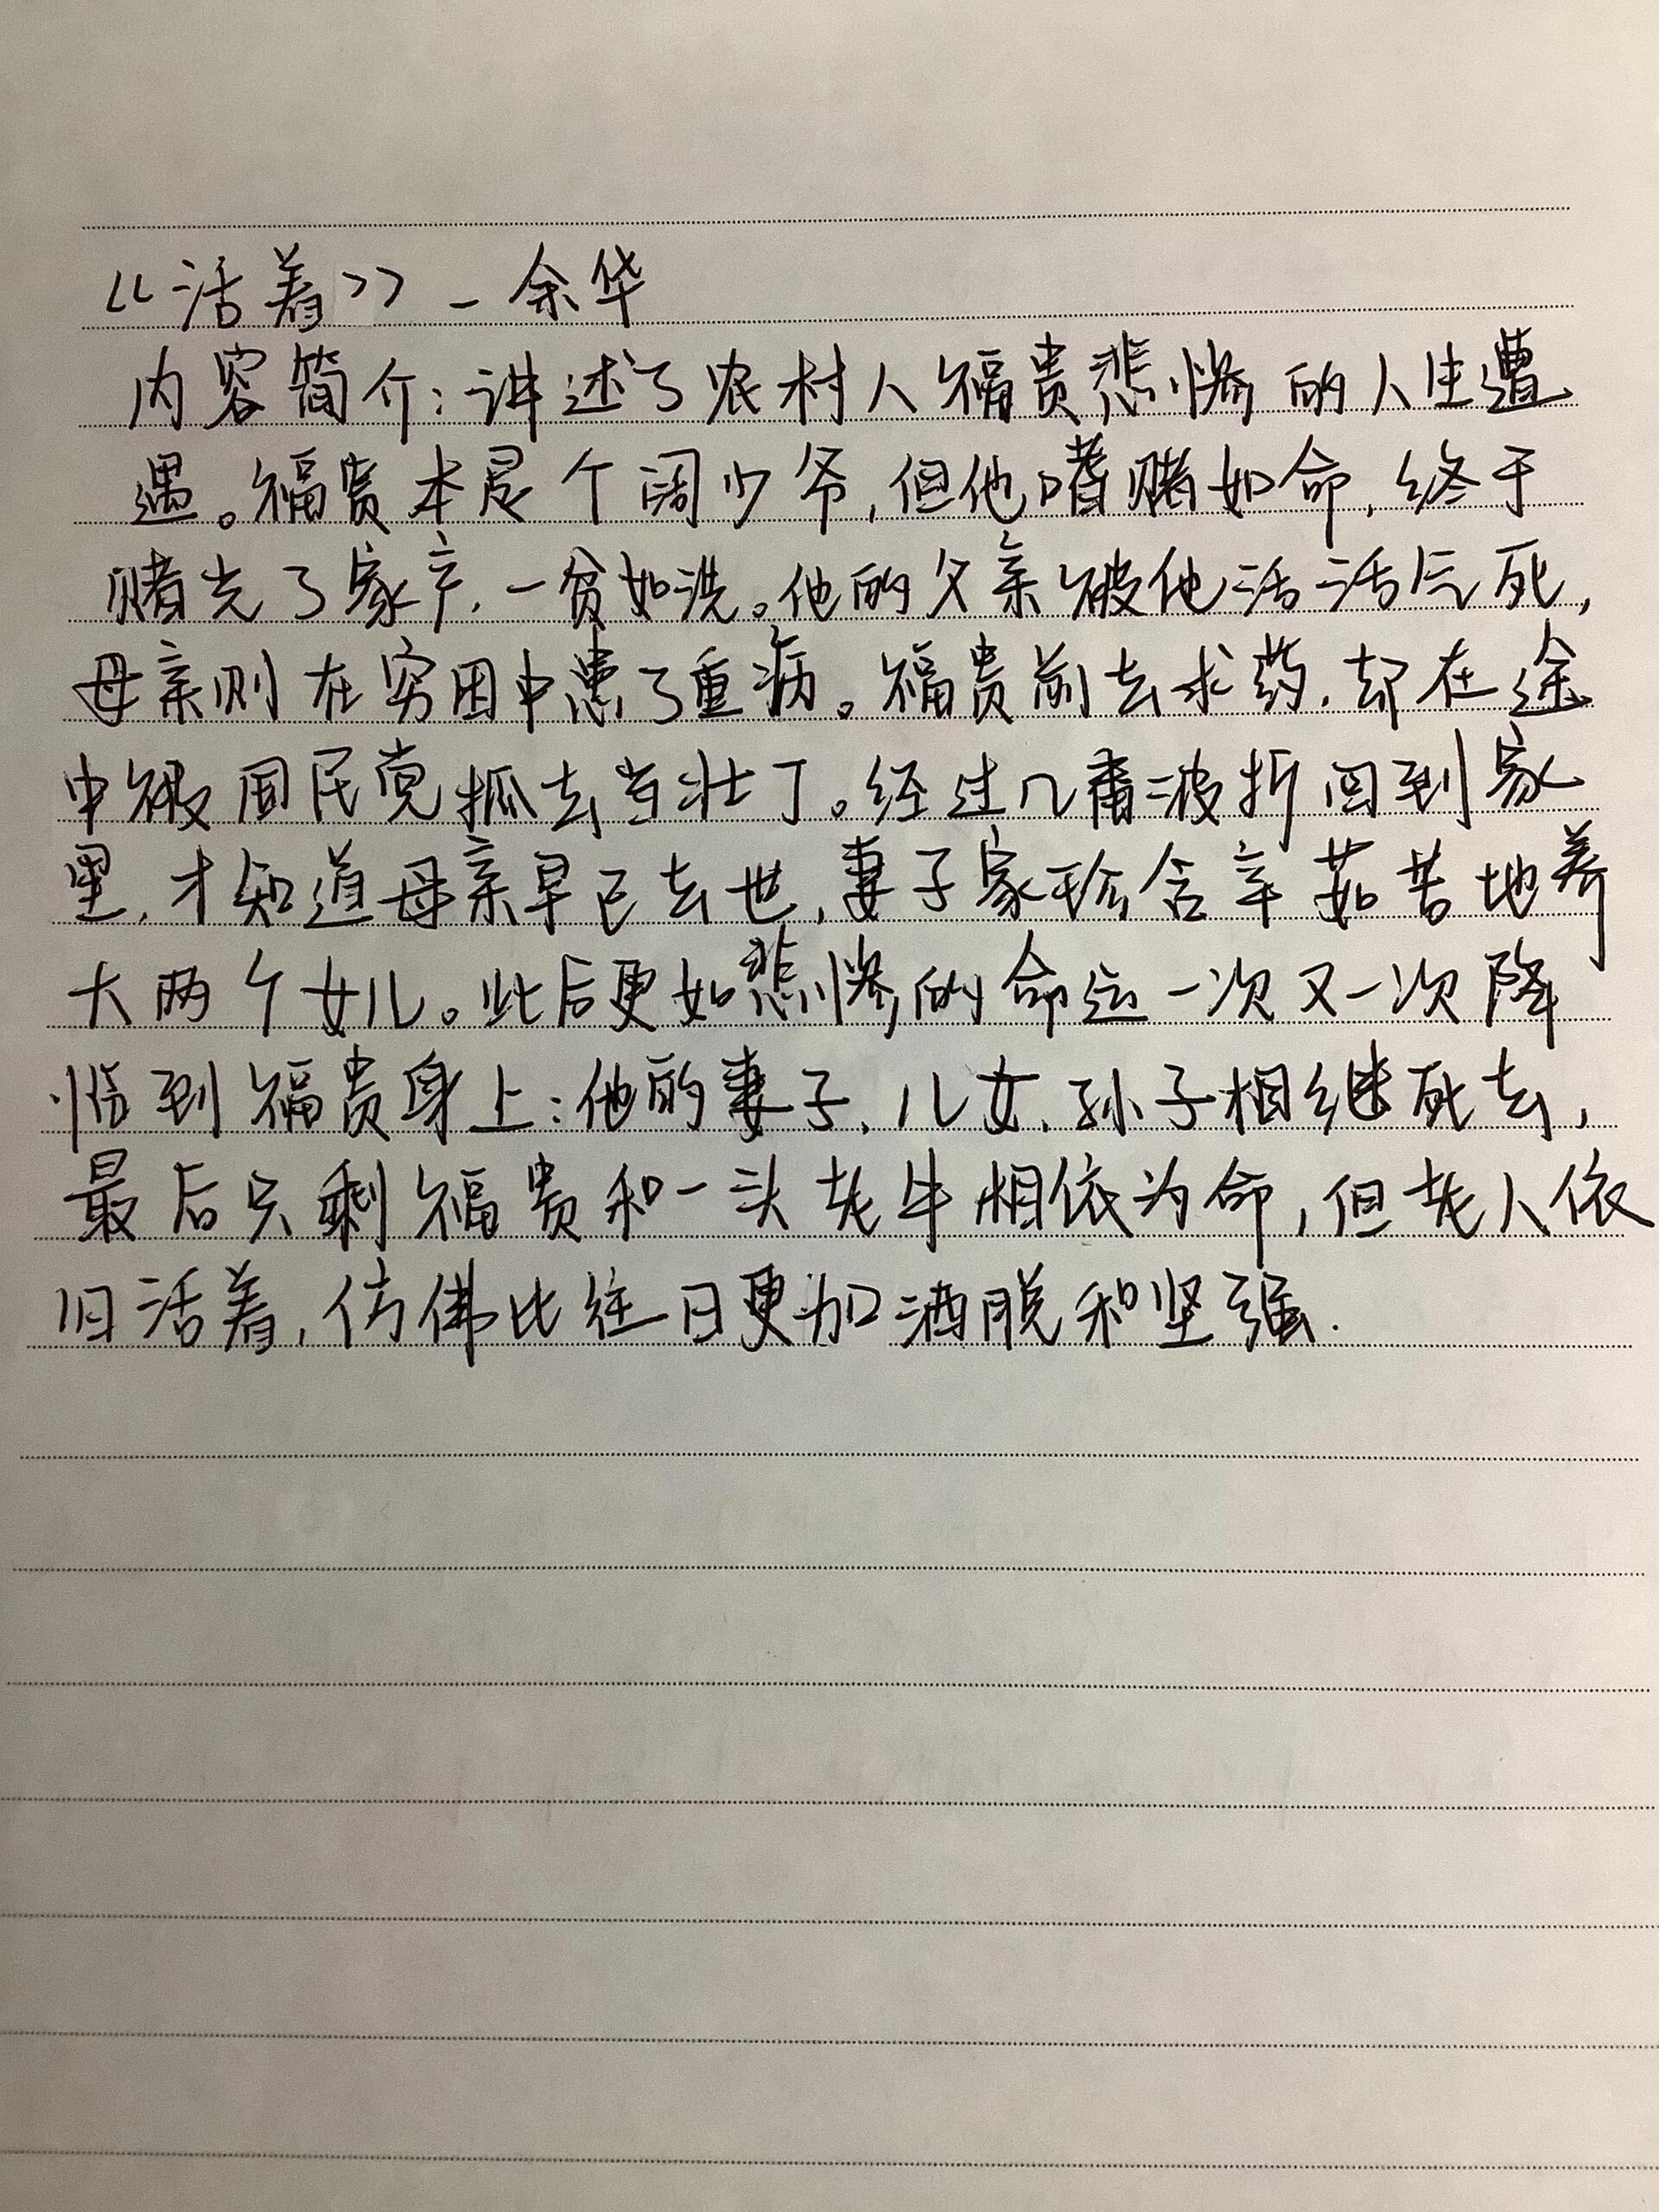 《活着》-余华
内容简介:讲述了农村人福贵悲惨的人生遭
遇。福贵本是个阔少爷,但他嗜赌如命,终于
赌光了家产,一贫如洗。他的父亲被他活活气死,
母亲则在穷困中患了重病。福贵前去求药,却在途
中被国民党抓去当壮丁。经过几番波折回到家
里,才知道母亲早已去世,妻子家珍含辛茹苦地养
大两个女儿。此后更如悲惨的命运一次又一次降
临到福贵身上:他的妻子、儿女、孙子相继死去,
最后只剩福贵和一头老牛相依为命,但老人依
旧活着,仿佛比往日更加洒脱和坚强.